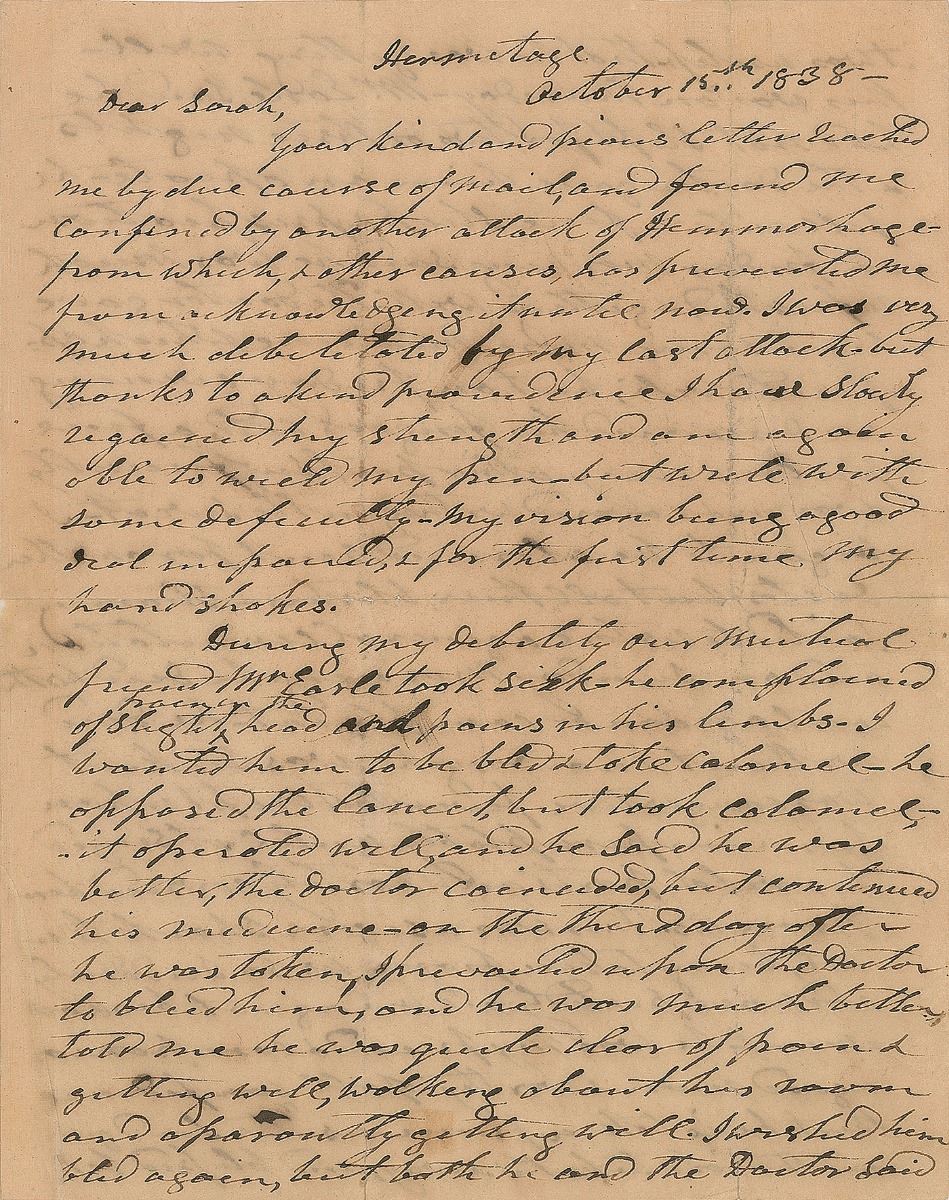 Hermitage
October 15th 1838 -
Dear Sarah,
Your kind and pious letter reached
me by due course of mail, and found me
confined by another attack of Hemmorhage -
from which, & other causes, has prevented me
from acknowledging it until now. I was very
much debilitated by my last attack - but
thanks to a kind providence I have slowly
regained my strength and am again
able to wield my pen - but write with
some deficulty - my vision being a good
deal impaired, & for the first time my
hand shakes.
During my debility our mutual
friend Mr. Earle took sick - he complained
pain in the
of slight head and pains in his limbs - I
wanted him to be bled & take calomel - he
opposed the lancet, but took calomel -
it operated well, and he said he was
better, the doctor coincided, but continued
his medicine - on the third day after
he was taken, I prevailed upon the Doctor
to bleed him, and he was much better,
told me he was quite clear of pain &
getting well, walking about his room
and aparantly getting well. I wished him
bled again, but both he and the Doctor said